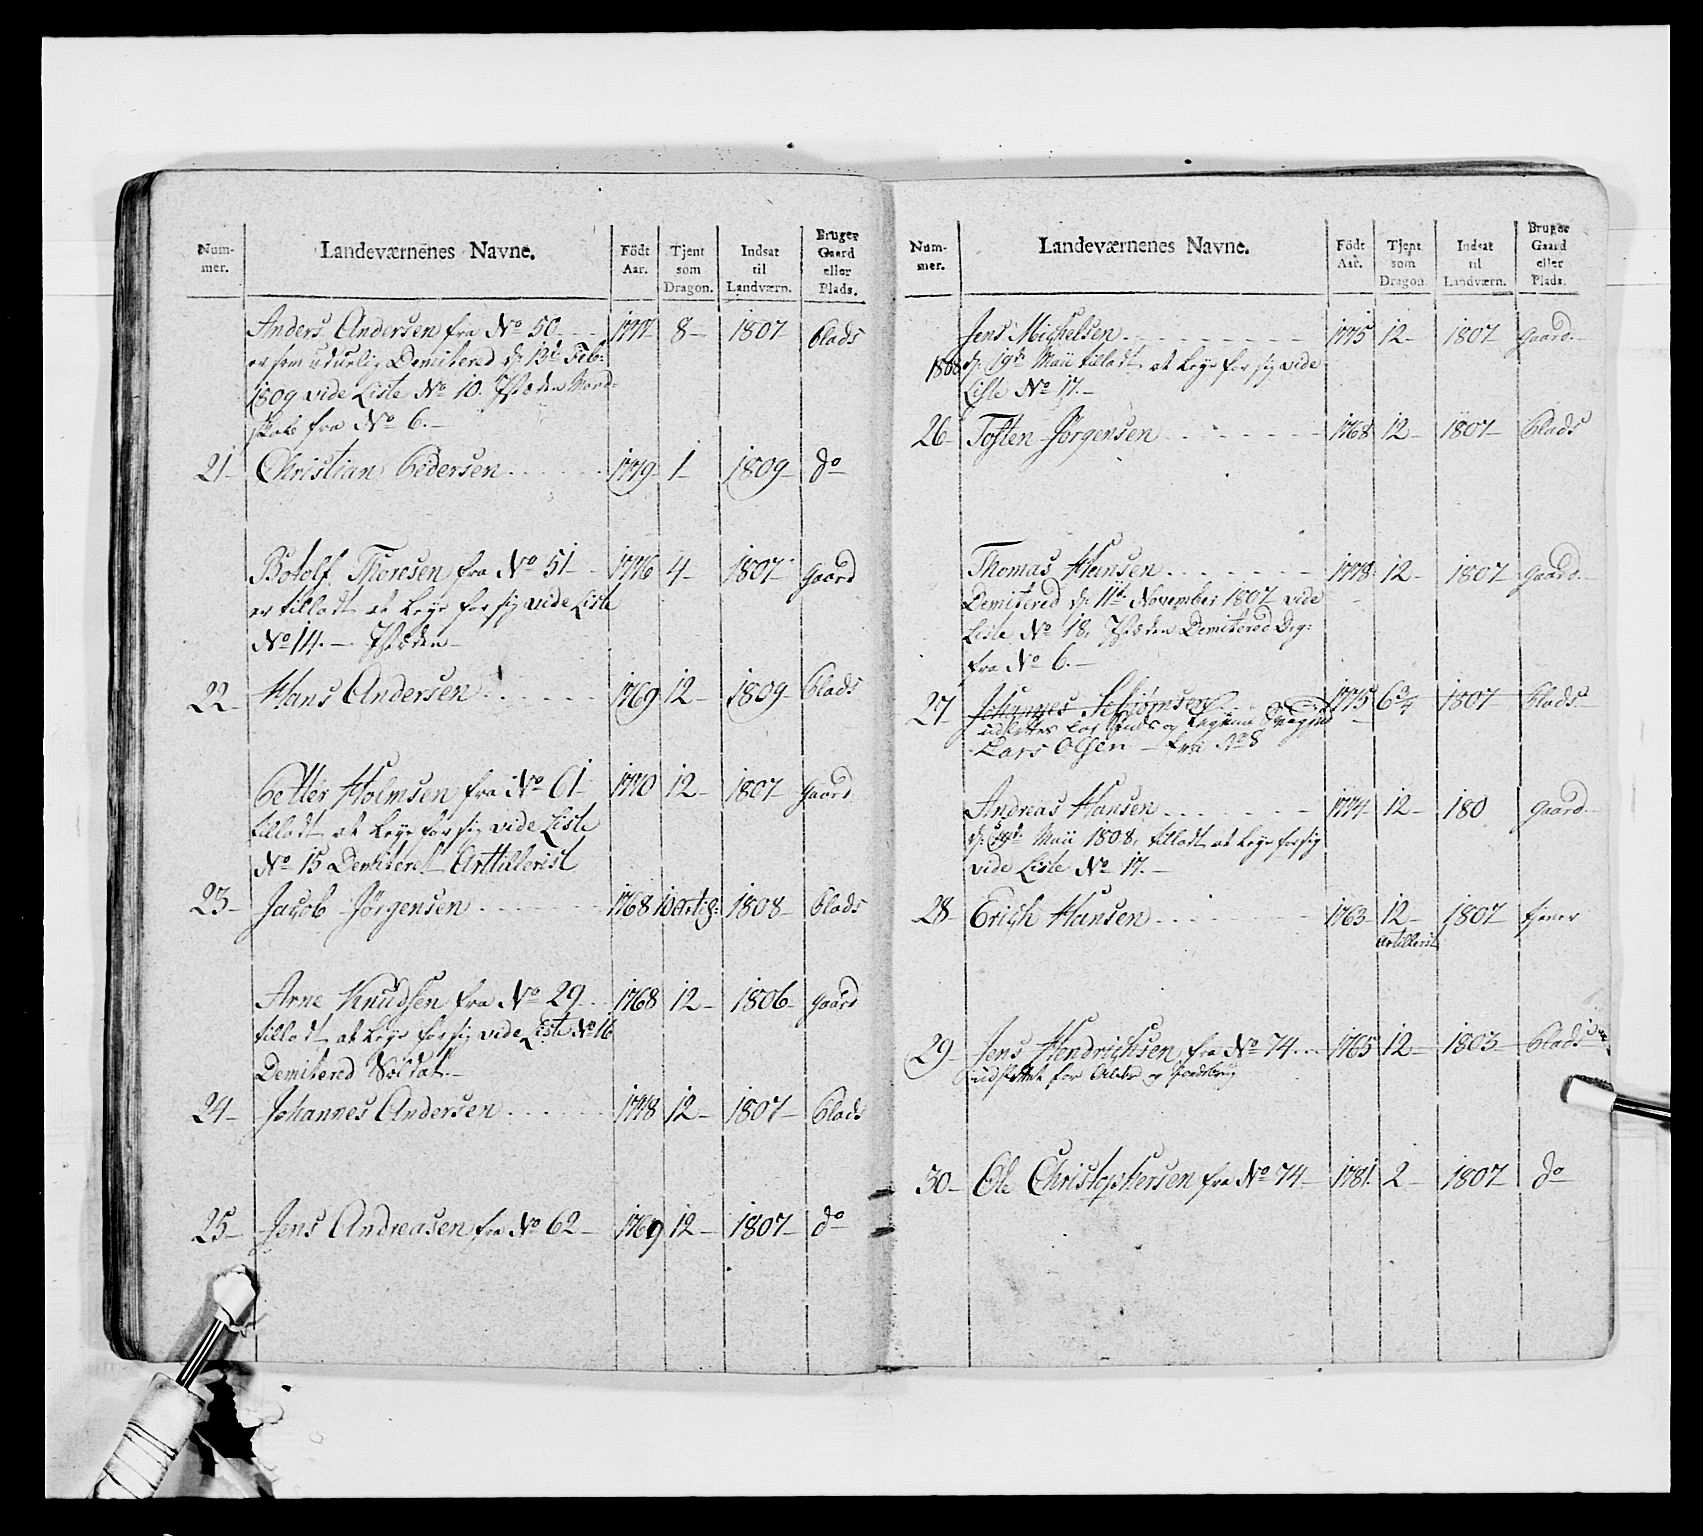 Num-
mer.
Landeværnenes Navne.
Födt
Aar.
Tjent
som
Dragon.
Indsat
til
Landværn.
Bruger
Gaard
eller
Plads.
Anders Andersen fra No 50 1777 8 1807 Plads
er som uduelig Demitered d: 13de Feb:
1809 vide Liste No 10. Istæden Mand-
skab fra No 6.
21 Christian Pedersen 1779 1 1809 do
Botolf Thoresen fra No 51 1776 4 1807 Gaard
er tilladt at leye for sig vide Liste
No 14. Istæden
22 Hans Andersen 1769 12 1809 Plads
Petter Holmsen fra No 61 1770 12 1807 Gaard
tilladt at leye for sig vide Liste
No 15 Demiteret Arttillerist
23 Jacob Jörgensen 1768 1808 Plads
Arne Knudsen fra No 29 1768 12 1806 Gaard
tilladt at leye for sig vide Liste No 16
Demitered Soldat.
24 Johannes Andersen 1778 12 1807 Plads
25 Jens Andreasen fra No 62 1769 12 1807 do
Num-
mer.
Landeværnenes Navne.
Födt
Aar.
Tjent
som
Dragon.
Indsat
til
Landværn.
Bruger
Gaard
eller
Plads.
Jens Michelsen 1775 12 1807 Gaard.
1808 d: 19de Maii tilladt at leye for sig vide
Liste No 17.
26 Tosten Jörgensen 1768 12 1807 Plads
Thomas Hansen 1778 12 1807 Gaard.
Demitered d: 11te November 1807 vide
Liste No 18, Istæden Demitered Drg:
fra No 6.
27 Johannes 1775 6 3/4 1807 Plads
udsættes for
Lars Olsen fra No 8
Andreas Hansen 1774 12 180 Gaard.
d: 19de Maii 1808, tilladt at leye for sig
vide Liste No 17.
28 Erich Hansen 1763 12 1807 tjener
Artillerist
29 Jens Hendrichsen fra No 74 1765 12 1803 Plads
udslettet for Alder og
30 Ole Christophersen fra No 74 1781. 2 1807 do